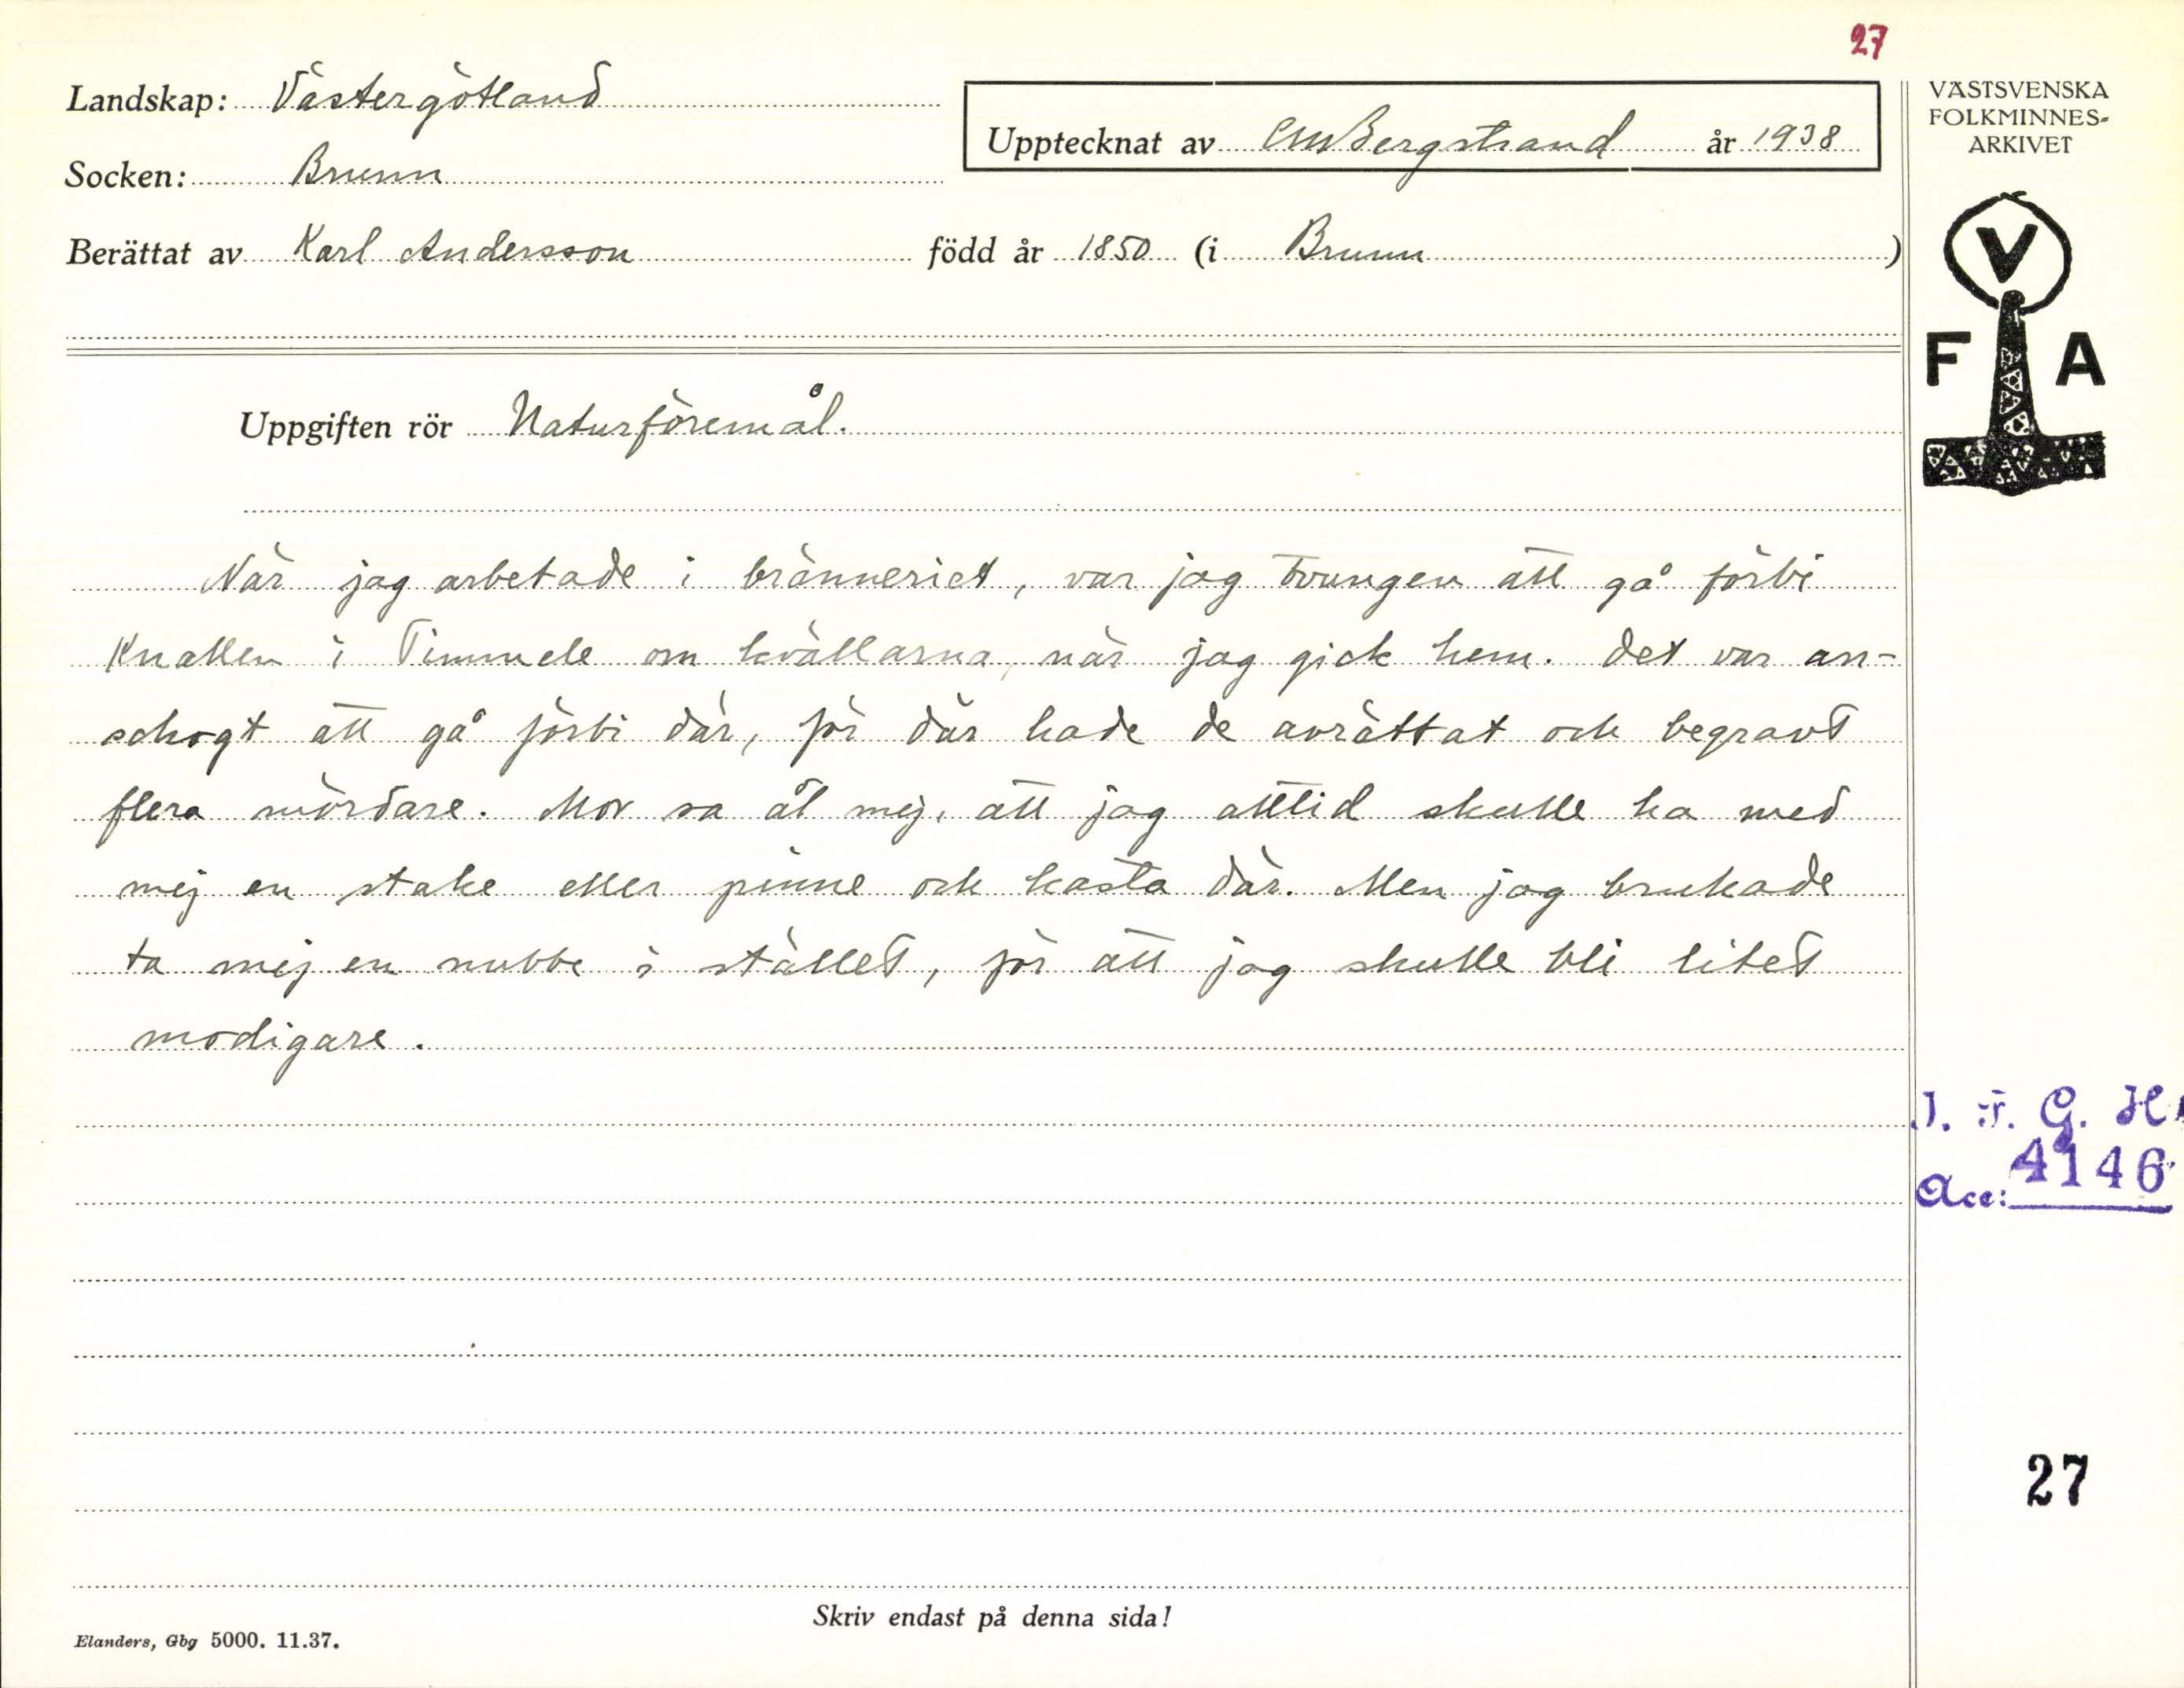 27
Landskap: Västergötland
Upptecknat av CM Bergstrand år 1938
Socken: Brunn
Berättat av Karl Andersson född år 1850 (i Brunn)
VÄSTSVENSKA
FOLKMINNES-
ARKIVET
V
F A
Uppgiften rör Naturföremål.
När jag arbetade i bränneriet, var jag tvungen att gå förbi
Knallen i Timmele om kvällarna, när jag gick hem. Det var an-
schogt att gå förbi där, för där hade de avrättat och begravt
flera mördare. Mor sa åt mej, att jag alltid skulle ha med
mej en stake eller pinne och kasta där. Men jag brukade
ta mej en nubbe i stället, för att jag skulle bli litet
modigare.
I. F. G. H.
Acc: 4146
27
Skriv endast på denna sida!
Elanders, Gbg 5000. 11.37.